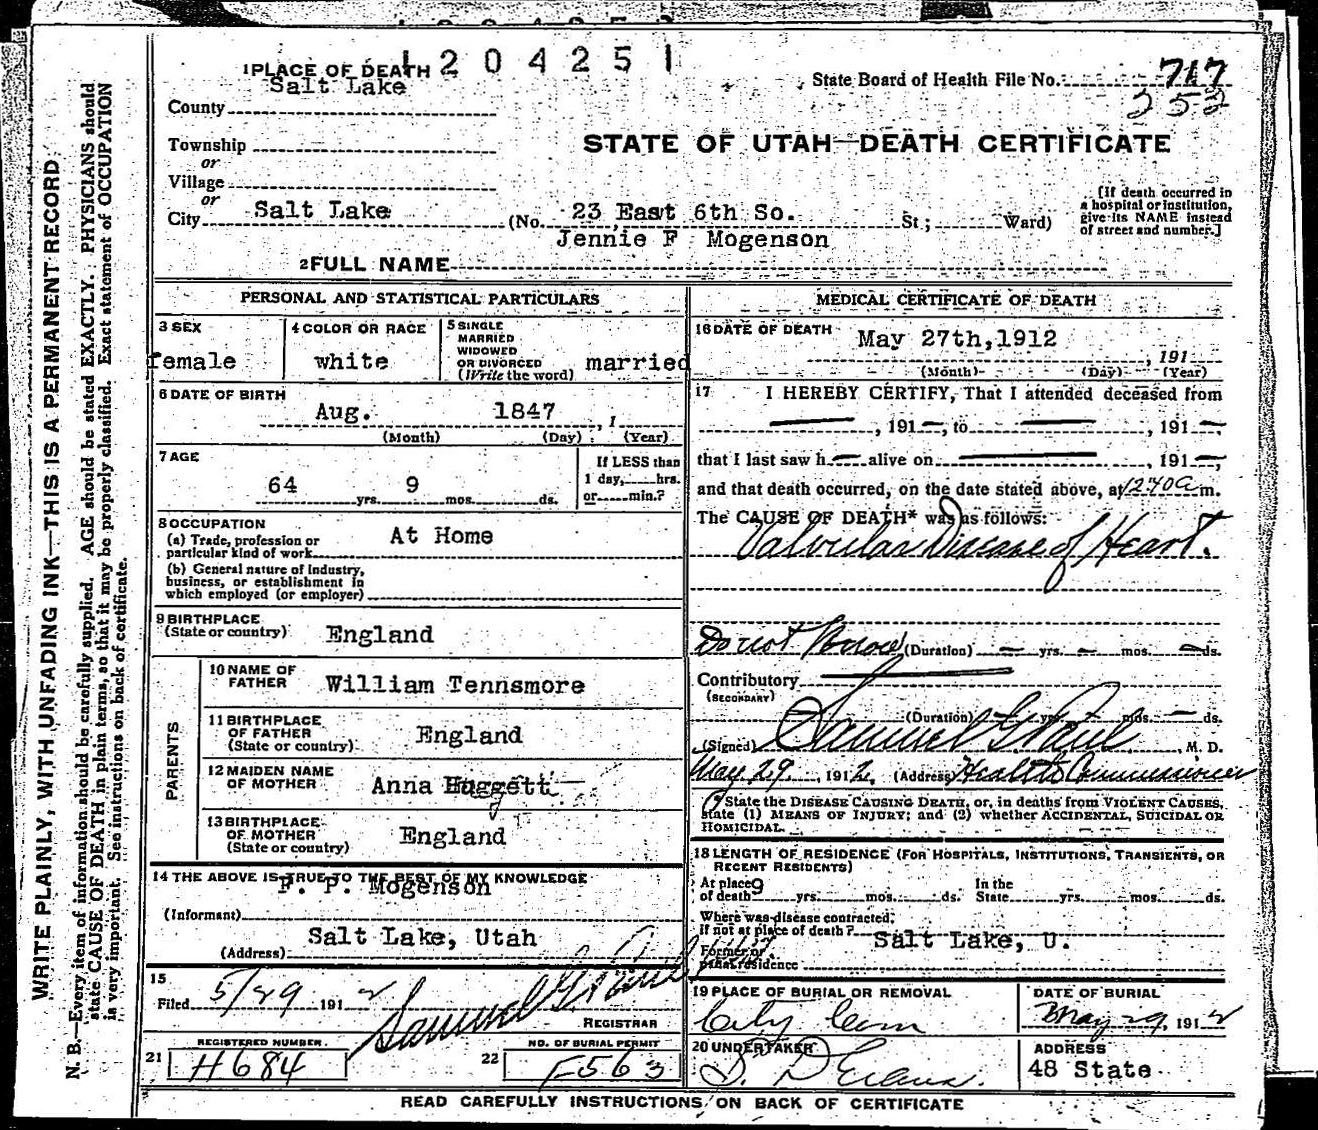 1204251
1 PLACE OF DEATH
Salt Lake
County
State Board of Health File No. 717
252
Township
or
Village
or
City Salt Lake (No. 23 East 6th So. St; Ward)
(If death occurred in
a hospital or institution,
give its NAME instead
of street and number.]
STATE OF UTAH—DEATH CERTIFICATE
Jennie F Mogenson
2 FULL NAME
PERSONAL AND STATISTICAL PARTICULARS
3 SEX
female
4 COLOR OR RACE
white
5 SINGLE
MARRIED
WIDOWED
OR DIVORCED
(Write the word)
married
6 DATE OF BIRTH
Aug. 1847, 1
(Month) (Day) (Year)
7 AGE
64 yrs. 9 mos. ds.
If LESS than
1 day, hrs.
or min.?
8 OCCUPATION
(a) Trade, profession or
particular kind of work
At Home
(b) General nature of Industry,
business, or establishment in
which employed (or employer)
9 BIRTHPLACE
(State or country) England
PARENTS
10 NAME OF
FATHER William Tennsmore
11 BIRTHPLACE
OF FATHER
(State or country) England
12 MAIDEN NAME
OF MOTHER Anna Huggett
13 BIRTHPLACE
OF MOTHER
(State or country) England
14 THE ABOVE IS TRUE TO THE BEST OF MY KNOWLEDGE
F. P. Mogenson
(Informant)
Salt Lake, Utah
(Address)
15
Filed 5/29 1912 Samuel G. Paul
REGISTRAR
REGISTERED NUMBER.
21 H684
NO. OF BURIAL PERMIT
22 F563
MEDICAL CERTIFICATE OF DEATH
16 DATE OF DEATH
May 27th, 1912
, 191
(Month) (Day) (Year)
17 I HEREBY CERTIFY, That I attended deceased from
— , 191—, to — , 191—,
that I last saw h— alive on — , 191—,
and that death occurred, on the date stated above, at 1240a m.
The CAUSE OF DEATH* was as follows:
Valvular Disease of Heart.
Do not Know (Duration) — yrs. — mos. — ds.
Contributory
(SECONDARY)
(Duration) yrs. mos. — ds.
(Signed) Samuel G. Paul, M. D.
May 29, 1912. (Address) Health Commissioner
* State the DISEASE CAUSING DEATH, or, in deaths from VIOLENT CAUSES,
state (1) MEANS OF INJURY; and (2) whether ACCIDENTAL, SUICIDAL OR
HOMICIDAL.
18 LENGTH OF RESIDENCE (FOR HOSPITALS, INSTITUTIONS, TRANSIENTS, OR
RECENT RESIDENTS)
At place 9
of death yrs. mos. ds.
In the
State yrs. mos. ds.
Where was disease contracted,
if not at place of death?
Salt Lake, U.
Former or
usual residence
19 PLACE OF BURIAL OR REMOVAL
City Cem
DATE OF BURIAL
May 29, 1912
20 UNDERTAKER
S. D Evans.
ADDRESS
48 State
READ CAREFULLY INSTRUCTIONS ON BACK OF CERTIFICATE
WRITE PLAINLY, WITH UNFADING INK—THIS IS A PERMANENT RECORD
N. B.—Every item of information should be carefully supplied. AGE should be stated EXACTLY. PHYSICIANS should
state CAUSE OF DEATH in plain terms, so that it may be properly classified. Exact statement of OCCUPATION
is very important. See instructions on back of certificate.